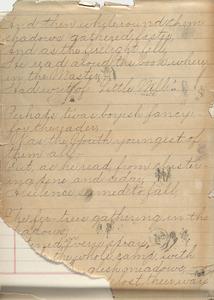 And then, while round them
shadows gathered faster,
And as the firelight fell,
He read aloud the book wherein
the Master
Had writ of "Little Nell"
Perhaps 'twas boyish fancy
for the reader
Was the youngest of
them all
But, as he read, from clustering
pine and cedar
A silence seemed to fall
The fir-trees gathering in the
shadows,
every spray,
the whole camp with
meadows
lost their way